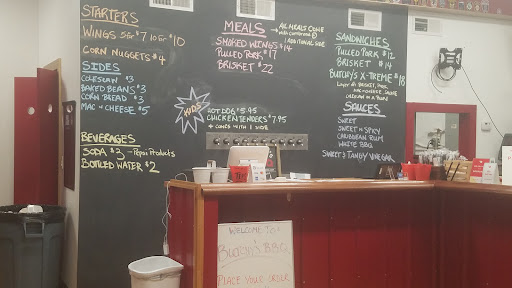 STARTERS
WINGS 5 for $7 10 for $10
CORN NUGGETS $4
SIDES
COLESLAW $3
BAKED BEANS $3
CORN BREAD $3
MAC N CHEESE $5
BEVERAGES
SODA $3 - Pepsi Products
BOTTLED WATER $2
MEALS
ALL MEALS COME
with cornbread &
1 ADDITIONAL SIDE
SMOKED WINGS $14
PULLED PORK $17
BRISKET $22
KIDS
HOT DOG $5.95
CHICKEN TENDERS $7.95
COMES WITH 1 SIDE
SANDWICHES
PULLED PORK $12
BRISKET $14
BUTCHY'S X-TREME $18
Layer of BRISKET, PORK,
MAC N CHEESE, SAUCE
SAUCES
SWEET
SWEET N SPICY
CARIBBEAN RUM
WHITE BBQ
SWEET & TANGY VINEGAR
WELCOME TO
BUTCHY'S BBQ
PLACE YOUR ORDER